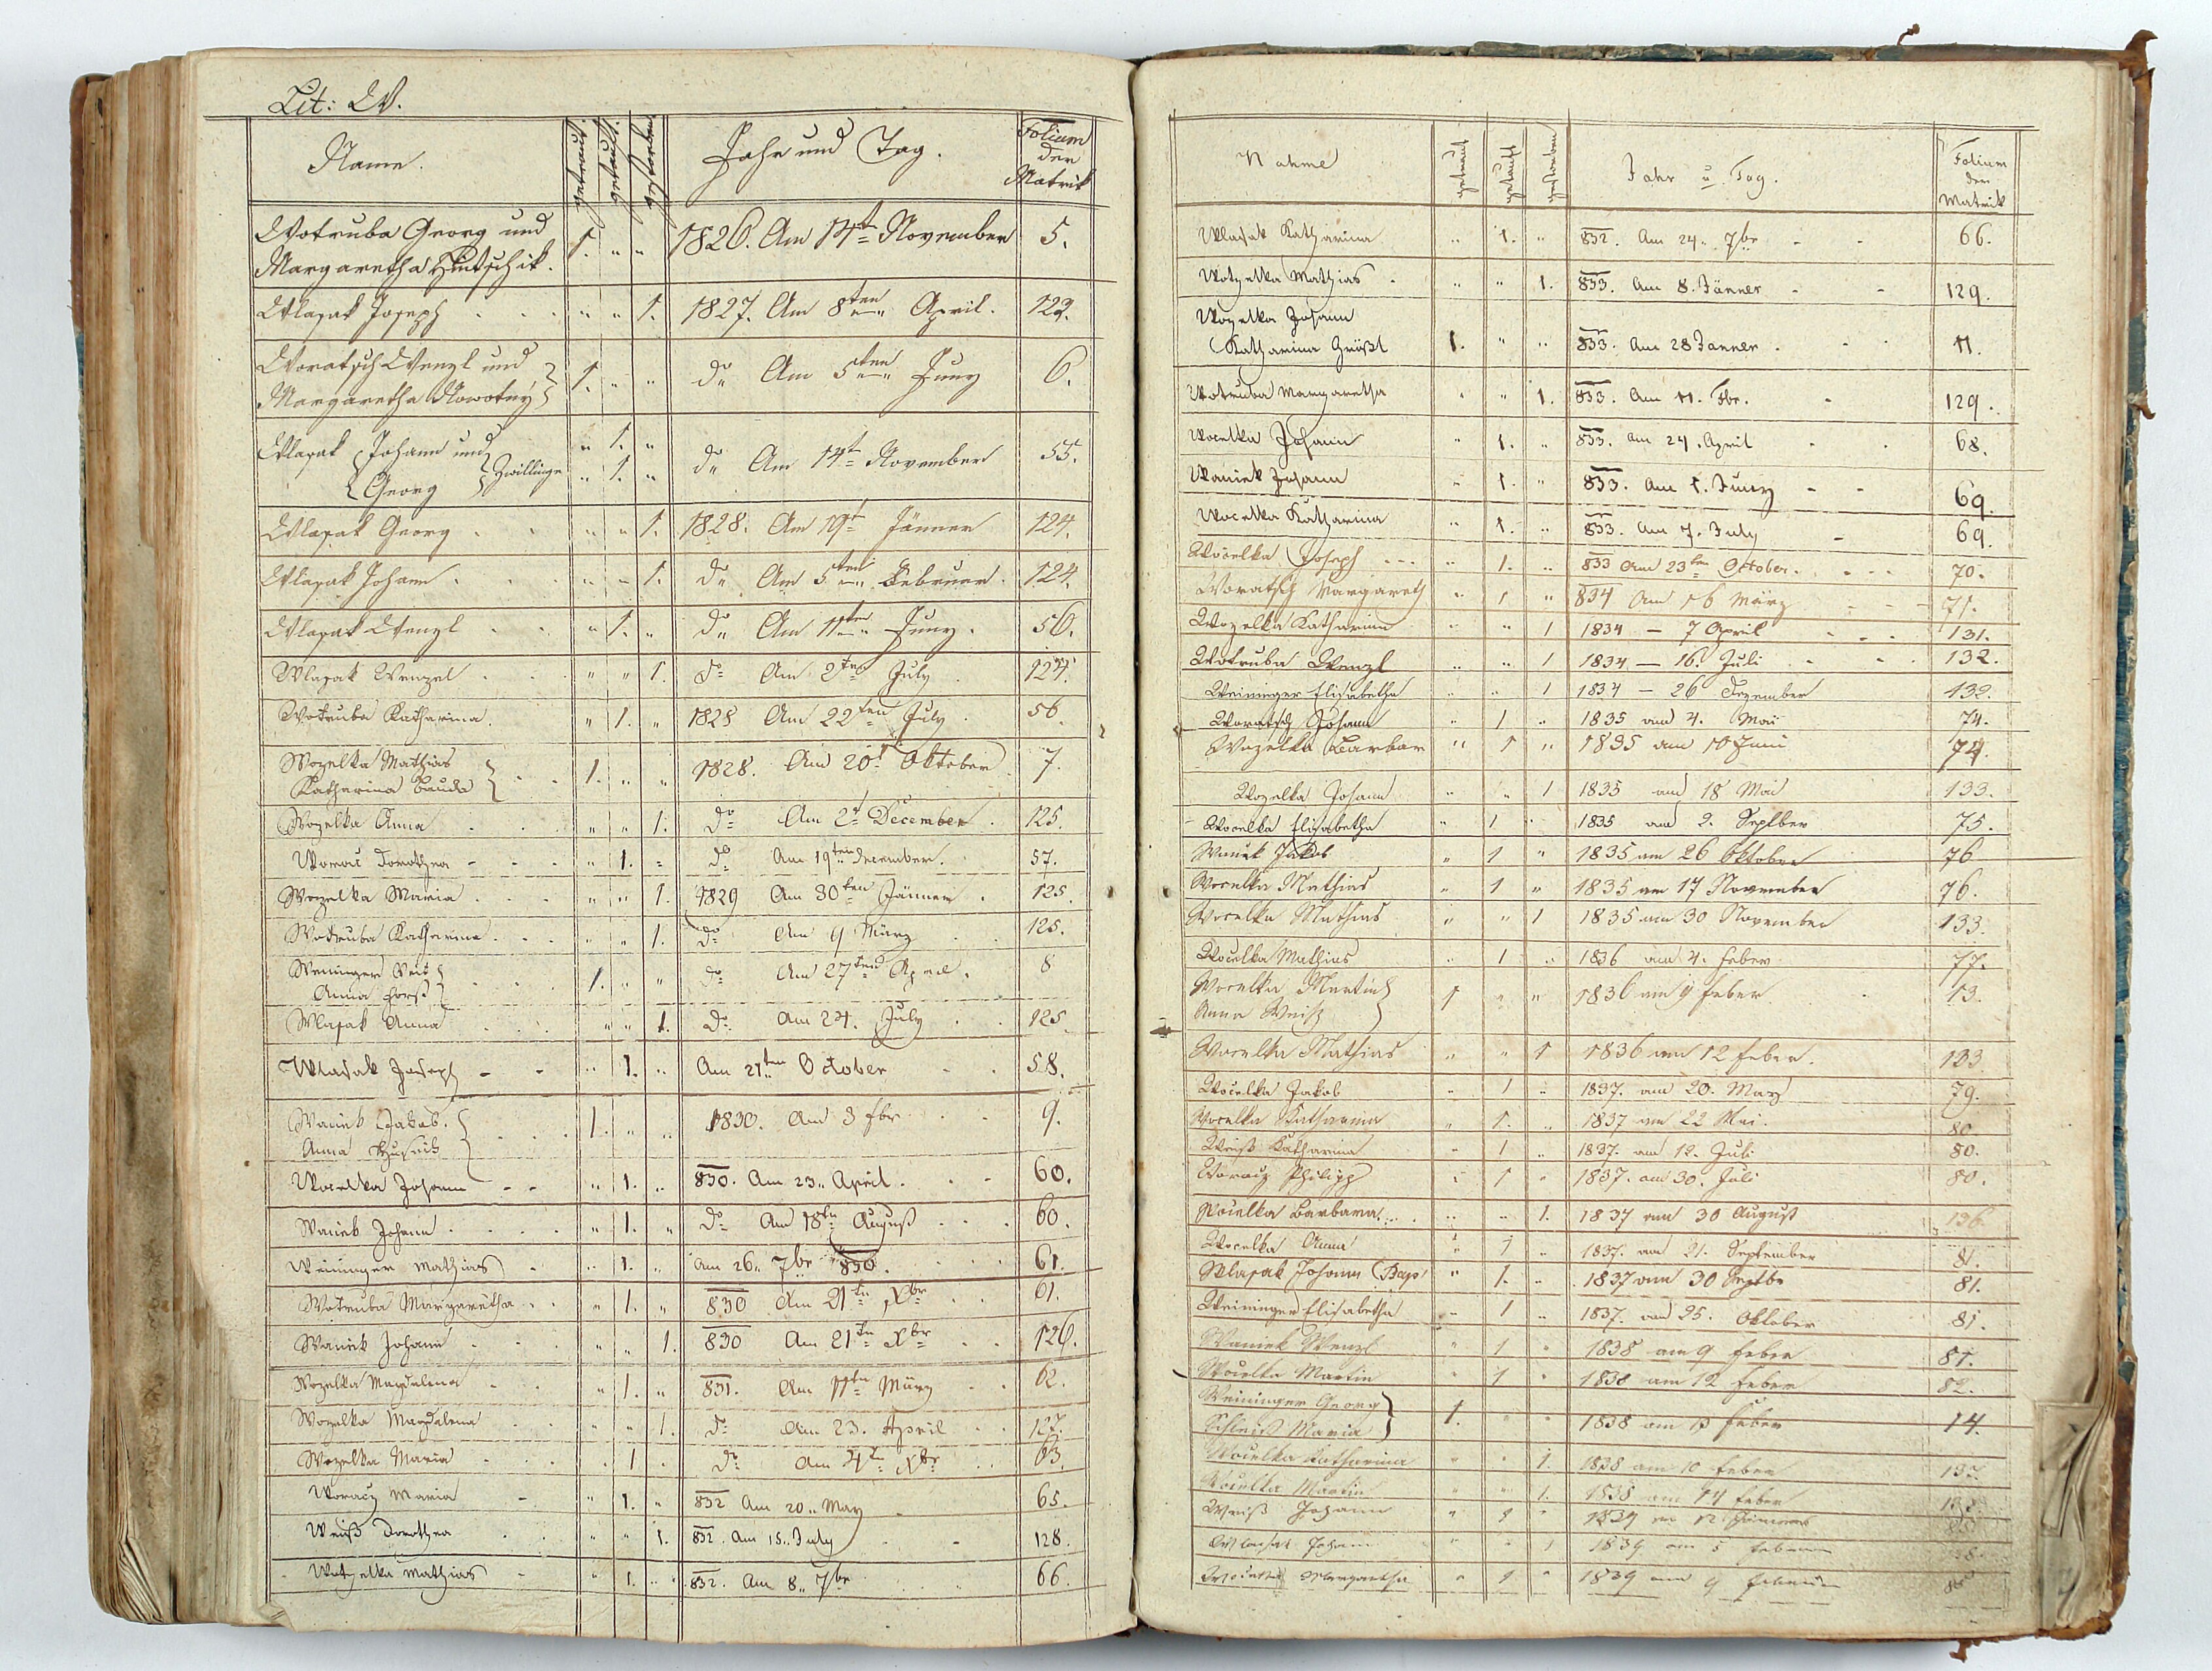 Lit: W.
Name. getraut. getauft. gestorben Jahr und Tag. Folium der Matrik
Wotruba Georg und
Margaretha 1. " " 1826. Am 14t November 5.
Wlasak Joseph " " 1. 1827. Am 8ten April. 123.
Woratsch Wenzl und
Margaretha Nowotny 1. " " do Am 5ten Juny 6.
Wlasak Johann und " 1. "
Georg Zwillinge " 1. " do Am 14t November 55.
Wlasak Georg " " 1. 1828. Am 19t Jänner 124.
Wlasak Johann " " 1. do Am 5ten Februar. 124.
Wlasak Wenzl " 1. " do Am 11ten Juny. 56.
Wlasak Wenzel " " 1. do Am 2ten July 124.
Wotruba Katharina. " 1. " 1828 Am 22ten July. 56.
Wozelka Mathias
Katharina Bauda 1. " " 1828. Am 20t Oktober 7.
Wozelka Anna " " 1. do Am 2t December 125.
Worac Dorothea " 1. " do Am 19ten December. 57.
Wozelka Maria " " 1. 1829 Am 30ten Jänner 125.
Wotruba Katharina " " 1. do Am 9 März 125.
Weninger Veit
Anna 1. " " do Am 27ten April. 8
Wlasak Anna " " 1. do Am 24. July 125.
Wlasak Joseph " 1. " Am 21ten October 58.
Waniek Jakob.
Anna 1. " " 1830. Am 3 fbr 9.
Wocelka Johann " 1. " 830. Am 23. April. 60.
Waniek Johann " 1. " do Am 18tn August 60.
Weininger Mathias " 1. " Am 26. 7br 830. 61.
Wotruba Margaretha " 1. " 830 Am 21tn Xbr 61.
Waniek Johann " " 1. 830 Am 21tn Xbr 126.
Wozelka Magdalena " 1. " 831. Am 11tn März 62.
Wozelka Magdalena " " 1. do Am 23. April 127.
Wozelka Maria " 1 " do Am 4t Xbr 63.
Woracz Maria " 1. " 832 Am 20. May 65.
Weiß Dorothea " " 1. 832. Am 15. July 128.
Wotzelka Mathias " 1. " 832. Am 8. 7br 66.
Nahme getraut getauft gestorben Jahr u. Tag. Folium der Matrik
Wlasak Katharina " 1. " 832. Am 24. 7br 66.
Wotzelka Mathias " " 1. 833. Am 8. Jänner 129.
Wozelka Johann
Katharina Größl 1. " " 833. Am 28 Janner 11.
Wotruba Margaretha " " 1. 833. Am 11. Fbr. 129.
Wocelka Johann " 1. " 833. Am 24. April 68.
Waniek Johann " 1. " 833. Am 1. Juny 69.
Wocelka Katharina " 1. " 833. Am 7. July 69.
Wocelka Joseph " 1. " 833 Am 23ten October. 70.
Woratsch Margareth " 1 " 834 Am 16 März 71.
Wozelka Katharina " " 1 1834 - 7 April 131.
Wotruba Wenzl " " 1 1834 - 16. Juli 132.
Weininger Elisabetha " " 1 1834 - 26 Dezember 132.
Woratsch Johann " 1 " 1835 am 4. Mai 74.
Wozelka Barbar " 1 " 1835 am 10 Juni 74.
Wozelka Johann " " 1 1835 am 18 Mai 133.
Wocelka Elisabetha " 1 " 1835 am 2. Septber 75.
Waniek Jakob " 1 " 1835 am 26 Oktober 76
Wocelka Mathias " 1 " 1835 am 17 November 76.
Wocelka Mathias " " 1 1835 am 30 November 133.
Wocelka Mathias " 1 " 1836 am 4. Feber 77.
Wocelka Martin
Anna Weiß 1 " " 1836 am 9 Feber 13.
Wocelka Mathias " " 1 1836 am 12 Feber. 133
Wocelka Jakob " 1 " 1837. am 20. May 79.
Wocelka Katharina " 1. " 1837 am 22 Mai. 80.
Weiß Katharina " 1 " 1837. am 12. Juli 80.
Woracz Philipp " 1 " 1837. am 30. Juli 80.
Wocelka Barbara " " 1. 1837 am 30 August 136
Wocelka Anna " 1 " 1837. am 21. September 81.
Wlasak Johann Bap " 1. " 1837 am 30 Septbr 81.
Weininger Elisabetha " 1 " 1837. am 25. Oktober 81.
Waniek Wenzl " 1 " 1838 am 9 Feber 81.
Wocelka Martin " 1 " 1838 am 12 Feber 82.
Weininger Georg
Maria 1. " " 1838 am 13 Feber 14.
Wocelka Katharina " " 1. 1838 am 10 Feber 137.
Wocelka Martin " " 1. 1838 am 14 Feber
Weiß Johann " 1 " 1839
Wlasak Johann " " 1 1839 am 5
Margaretha " 1 " 1839 am 9